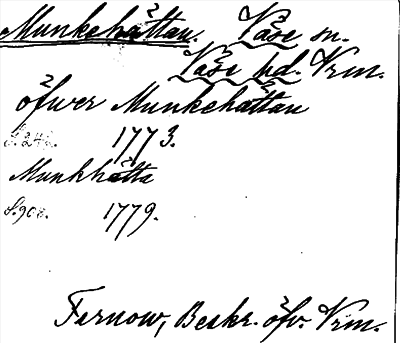 Munkehättan. Väse sn.
Väse hd. Vrm.
öfwer Munkehättan
S. 246. 1773.
Munkhätta
S. 908. 1779.
Fernow, Beskr. öfv. Vrm.